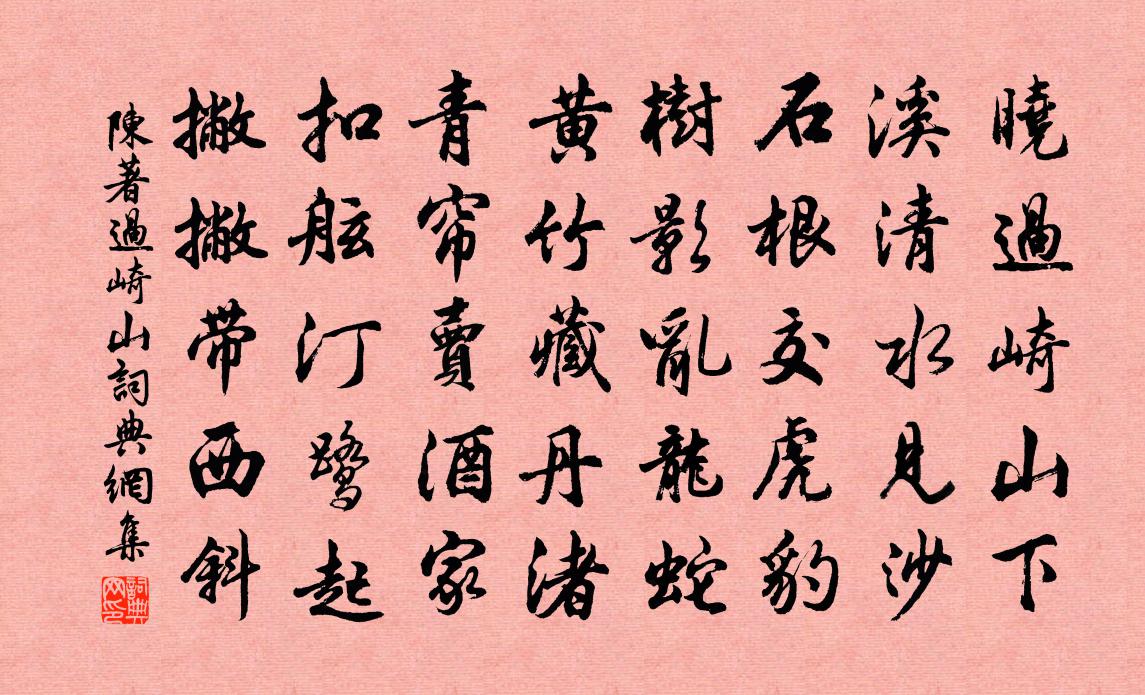 曉過崎山下
溪清水見沙
石根交虎豹
樹影亂龍蛇
黄竹藏丹渚
青帘賣酒家
扣舷汀鷺起
撇撇帯西斜
陳著過崎山詞典網集
詞典网印